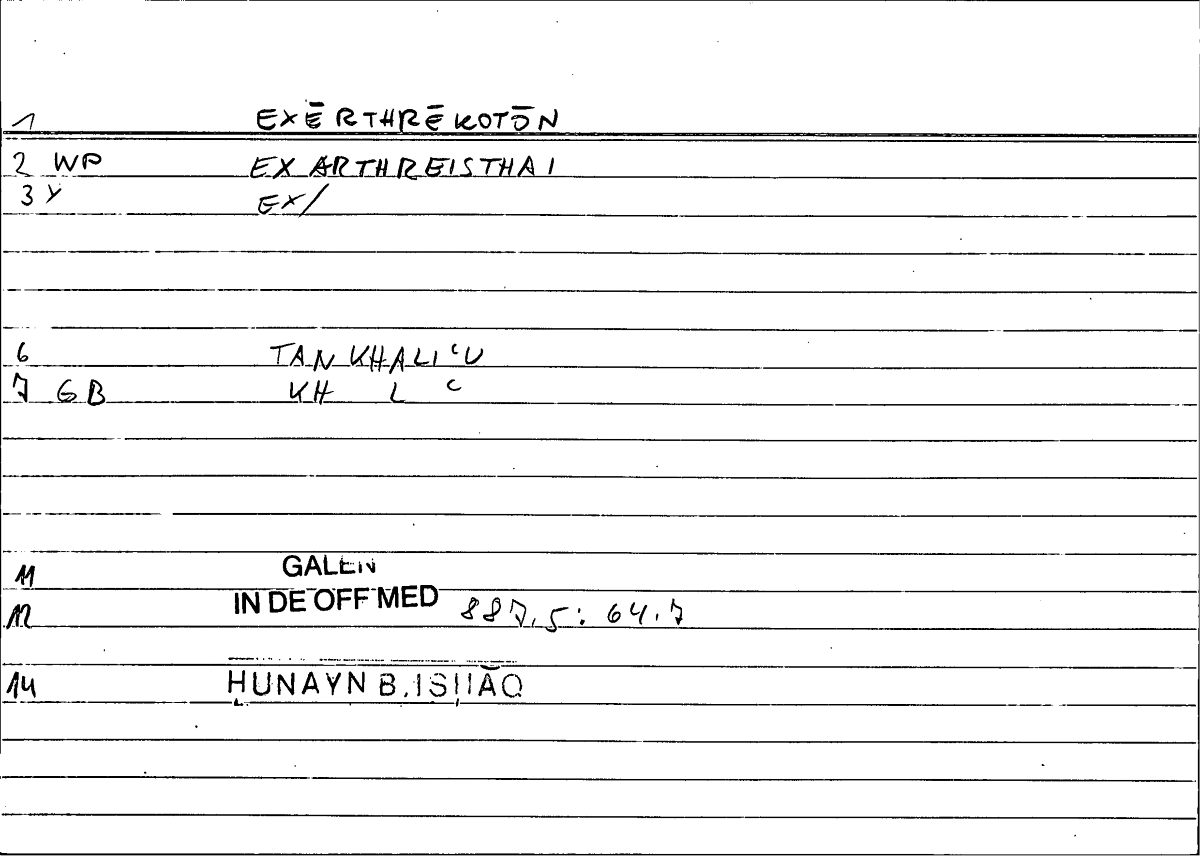 1 EXĒRTHRĒKOTŌN
2 WP EX ARTHREISTHAI
3 Y EX/
6 TAN KHALIʿU
7 GB KH L ʿ
11 GALEN
12 IN DE OFF MED 887,5: 64,7
14 ḤUNAYN B. ISḤĀQ